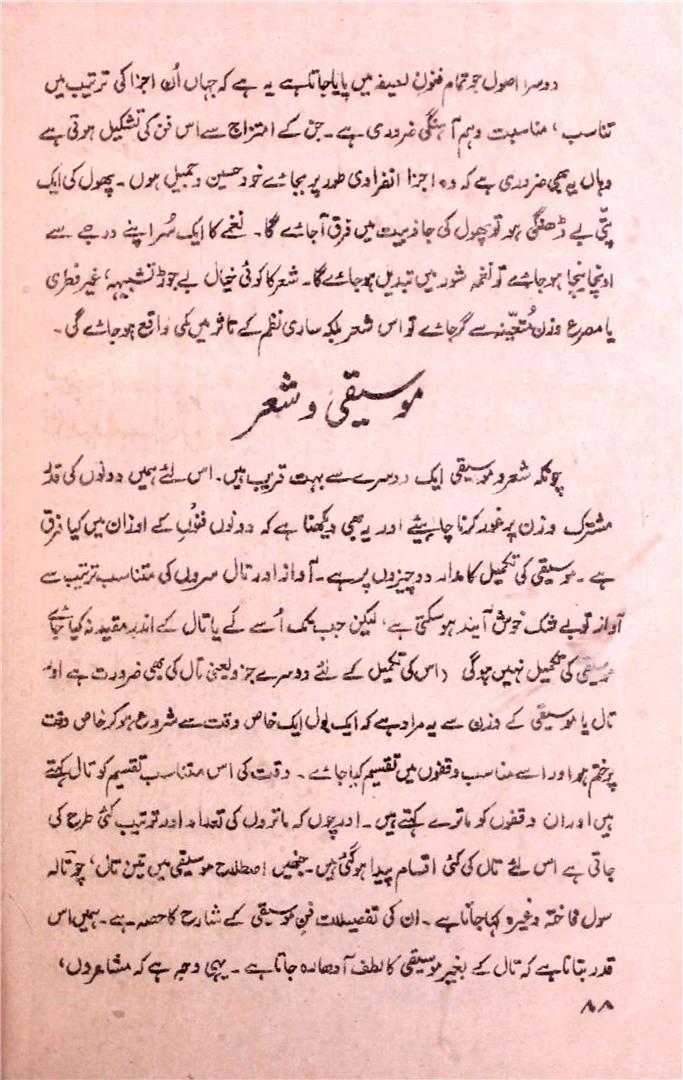 دوسرا اصول جو تمام فنونِ لطیفہ میں پایا جاتا ہے یہ ہے کہ جہاں اُن اجزا کی ترتیب میں
تناسب، مناسبت وہم آہنگی ضروری ہے۔ جن کے امتزاج سے اس فن کی تشکیل ہوتی ہے
وہاں یہ بھی ضروری ہے کہ وہ اجزا انفرادی طور پر بجائے خود حسین و جمیل ہوں۔ پھول کی ایک
پتّی بے ڈھنگی ہو تو پھول کی جاذبیت میں فرق آجائے گا۔ نغمے کا ایک سُر اپنے درجے سے
اونچا نیچا ہو جائے تو نغمہ شور میں تبدیل ہو جائے گا۔ شعر کا کوئی خیال بے جوڑ تشبیہہ، غیر فطری
یا مصرع وزن مُتعیّنہ سے گر جائے تو اس شعر بلکہ ساری نظم کے تاثر میں کمی واقع ہو جائے گی۔
موسیقی و شعر
چونکہ شعر و موسیقی ایک دوسرے سے بہت قریب ہیں۔ اس لئے ہمیں دونوں کی قدر
مشترک وزن پر غور کرنا چاہیئے اور یہ بھی دیکھنا ہے کہ دونوں فنُوں کے اوزان میں کیا فرق
ہے۔ موسیقی کی تکمیل کا مدار دو چیزوں پر ہے۔ آواز اور تال سروں کی متناسب ترتیب سے
آواز تو بے شک خوش آیند ہو سکتی ہے، لیکن جب تک اُسے لے یا تال کے اندر مقید نہ کیا جائے
موسیقی کی تکمیل نہیں ہوگی (اس کی تکمیل کے لئے دوسرے جزو یعنی تال کی بھی ضرورت ہے اور
تال یا موسیقی کے وزن سے یہ مراد ہے کہ ایک بول ایک خاص وقت سے شروع ہو کر خاص وقت
پر ختم ہو اور اسے مناسب وقفوں میں تقسیم کیا جائے۔ وقت کی اس متناسب تقسیم کو تال کہتے
ہیں اور ان وقفوں کو ماترے کہتے ہیں۔ اور چوں کہ ماتروں کی تعداد اور ترتیب کئی طرح کی
جاتی ہے اس لئے تال کی کئی اقسام پیدا ہو گئی ہیں۔ جنھیں اصطلاح موسیقی میں تین تال، چوتالہ
سول فاختہ وغیرہ کہا جاتا ہے۔ ان کی تفصیلات فنِ موسیقی کے شارح کا حصہ ہے۔ ہمیں اس
قدر بتانا ہے کہ تال کے بغیر موسیقی کا لطف آدھا رہ جاتا ہے۔ یہی وجہ ہے کہ مشاعروں،
۸۸